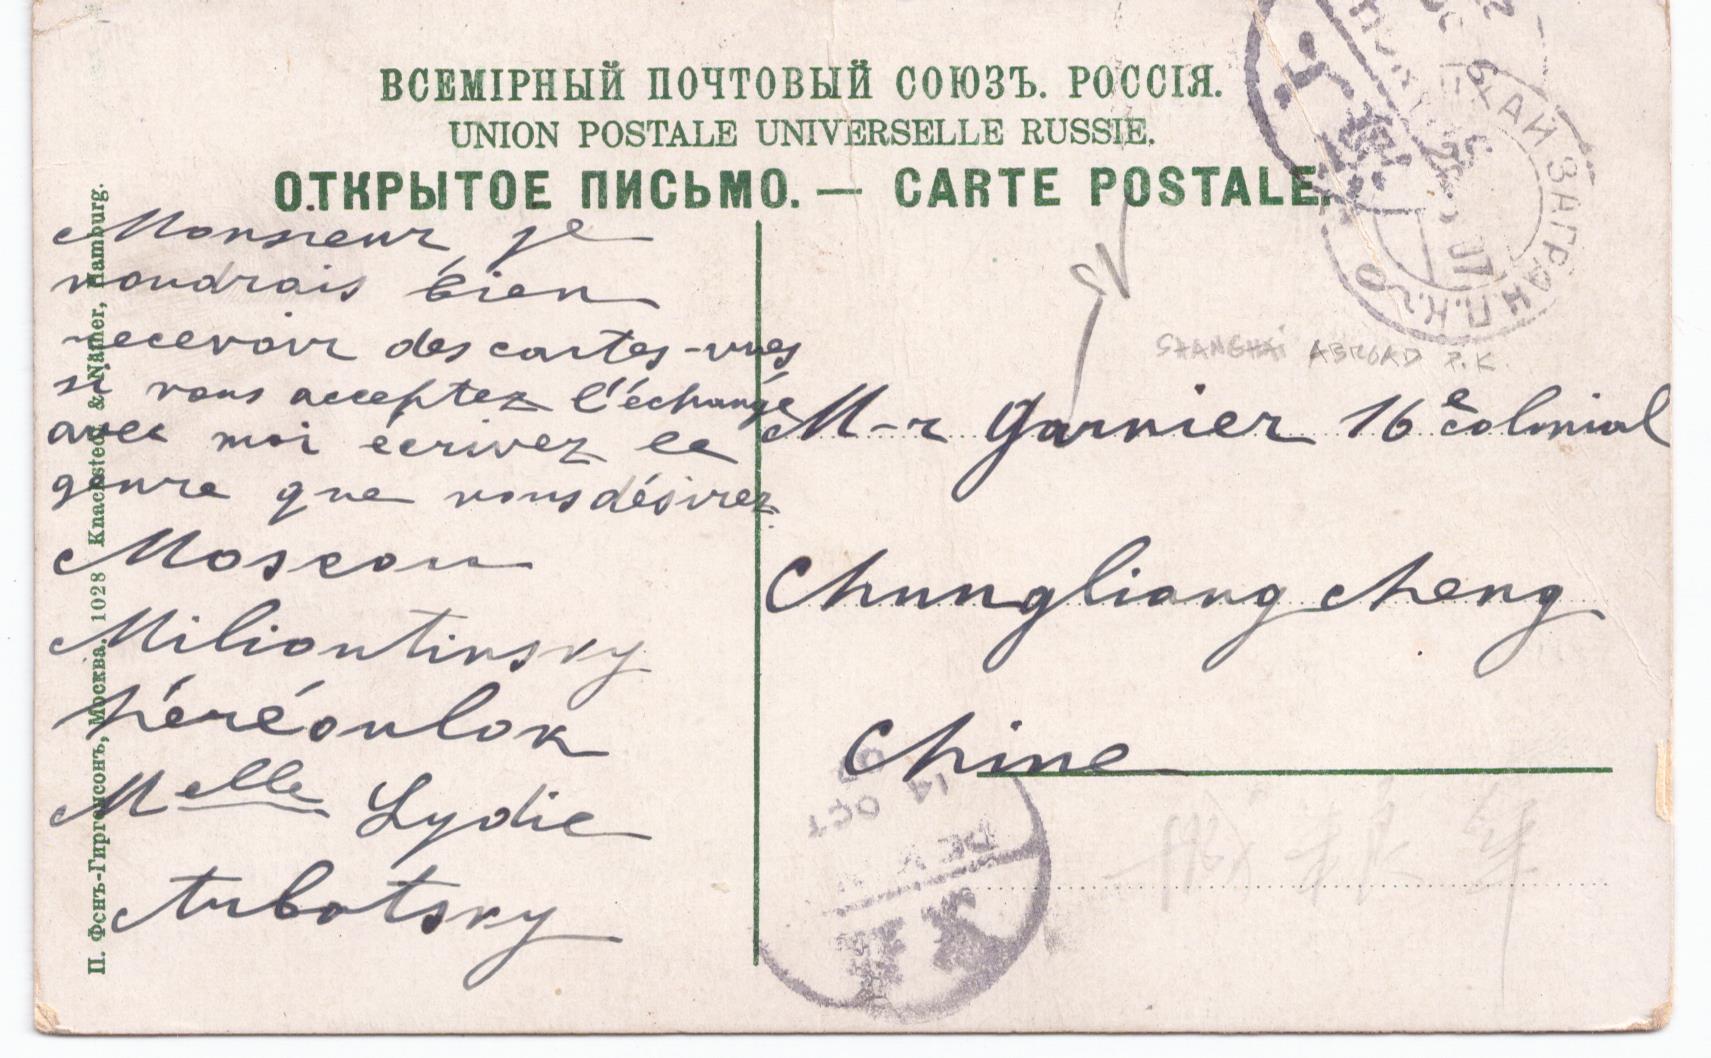 ВСЕМІРНЫЙ ПОЧТОВЫЙ СОЮЗЪ. РОССІЯ.
UNION POSTALE UNIVERSELLE RUSSIE.
ОТКРЫТОЕ ПИСЬМО. — CARTE POSTALE.
Monsieur je
voudrais bien
recevoir des cartes-vues
si vous acceptez l'échange
avec moi écrivez le
genre que vous désirez
Moscou
Milioutinsky
péréoulok
Melle Lydie
Arbatsky
M-r Garnier 16e colonial
Chungliang cheng
Chine
SHANGHAI ABROAD P.K.
ХАЙ ЗАГРАН.П.К.
14 OCT
П. Фонъ-Гиргенсонъ, Москва, 1028 Knackstedt & Näther, Hamburg.